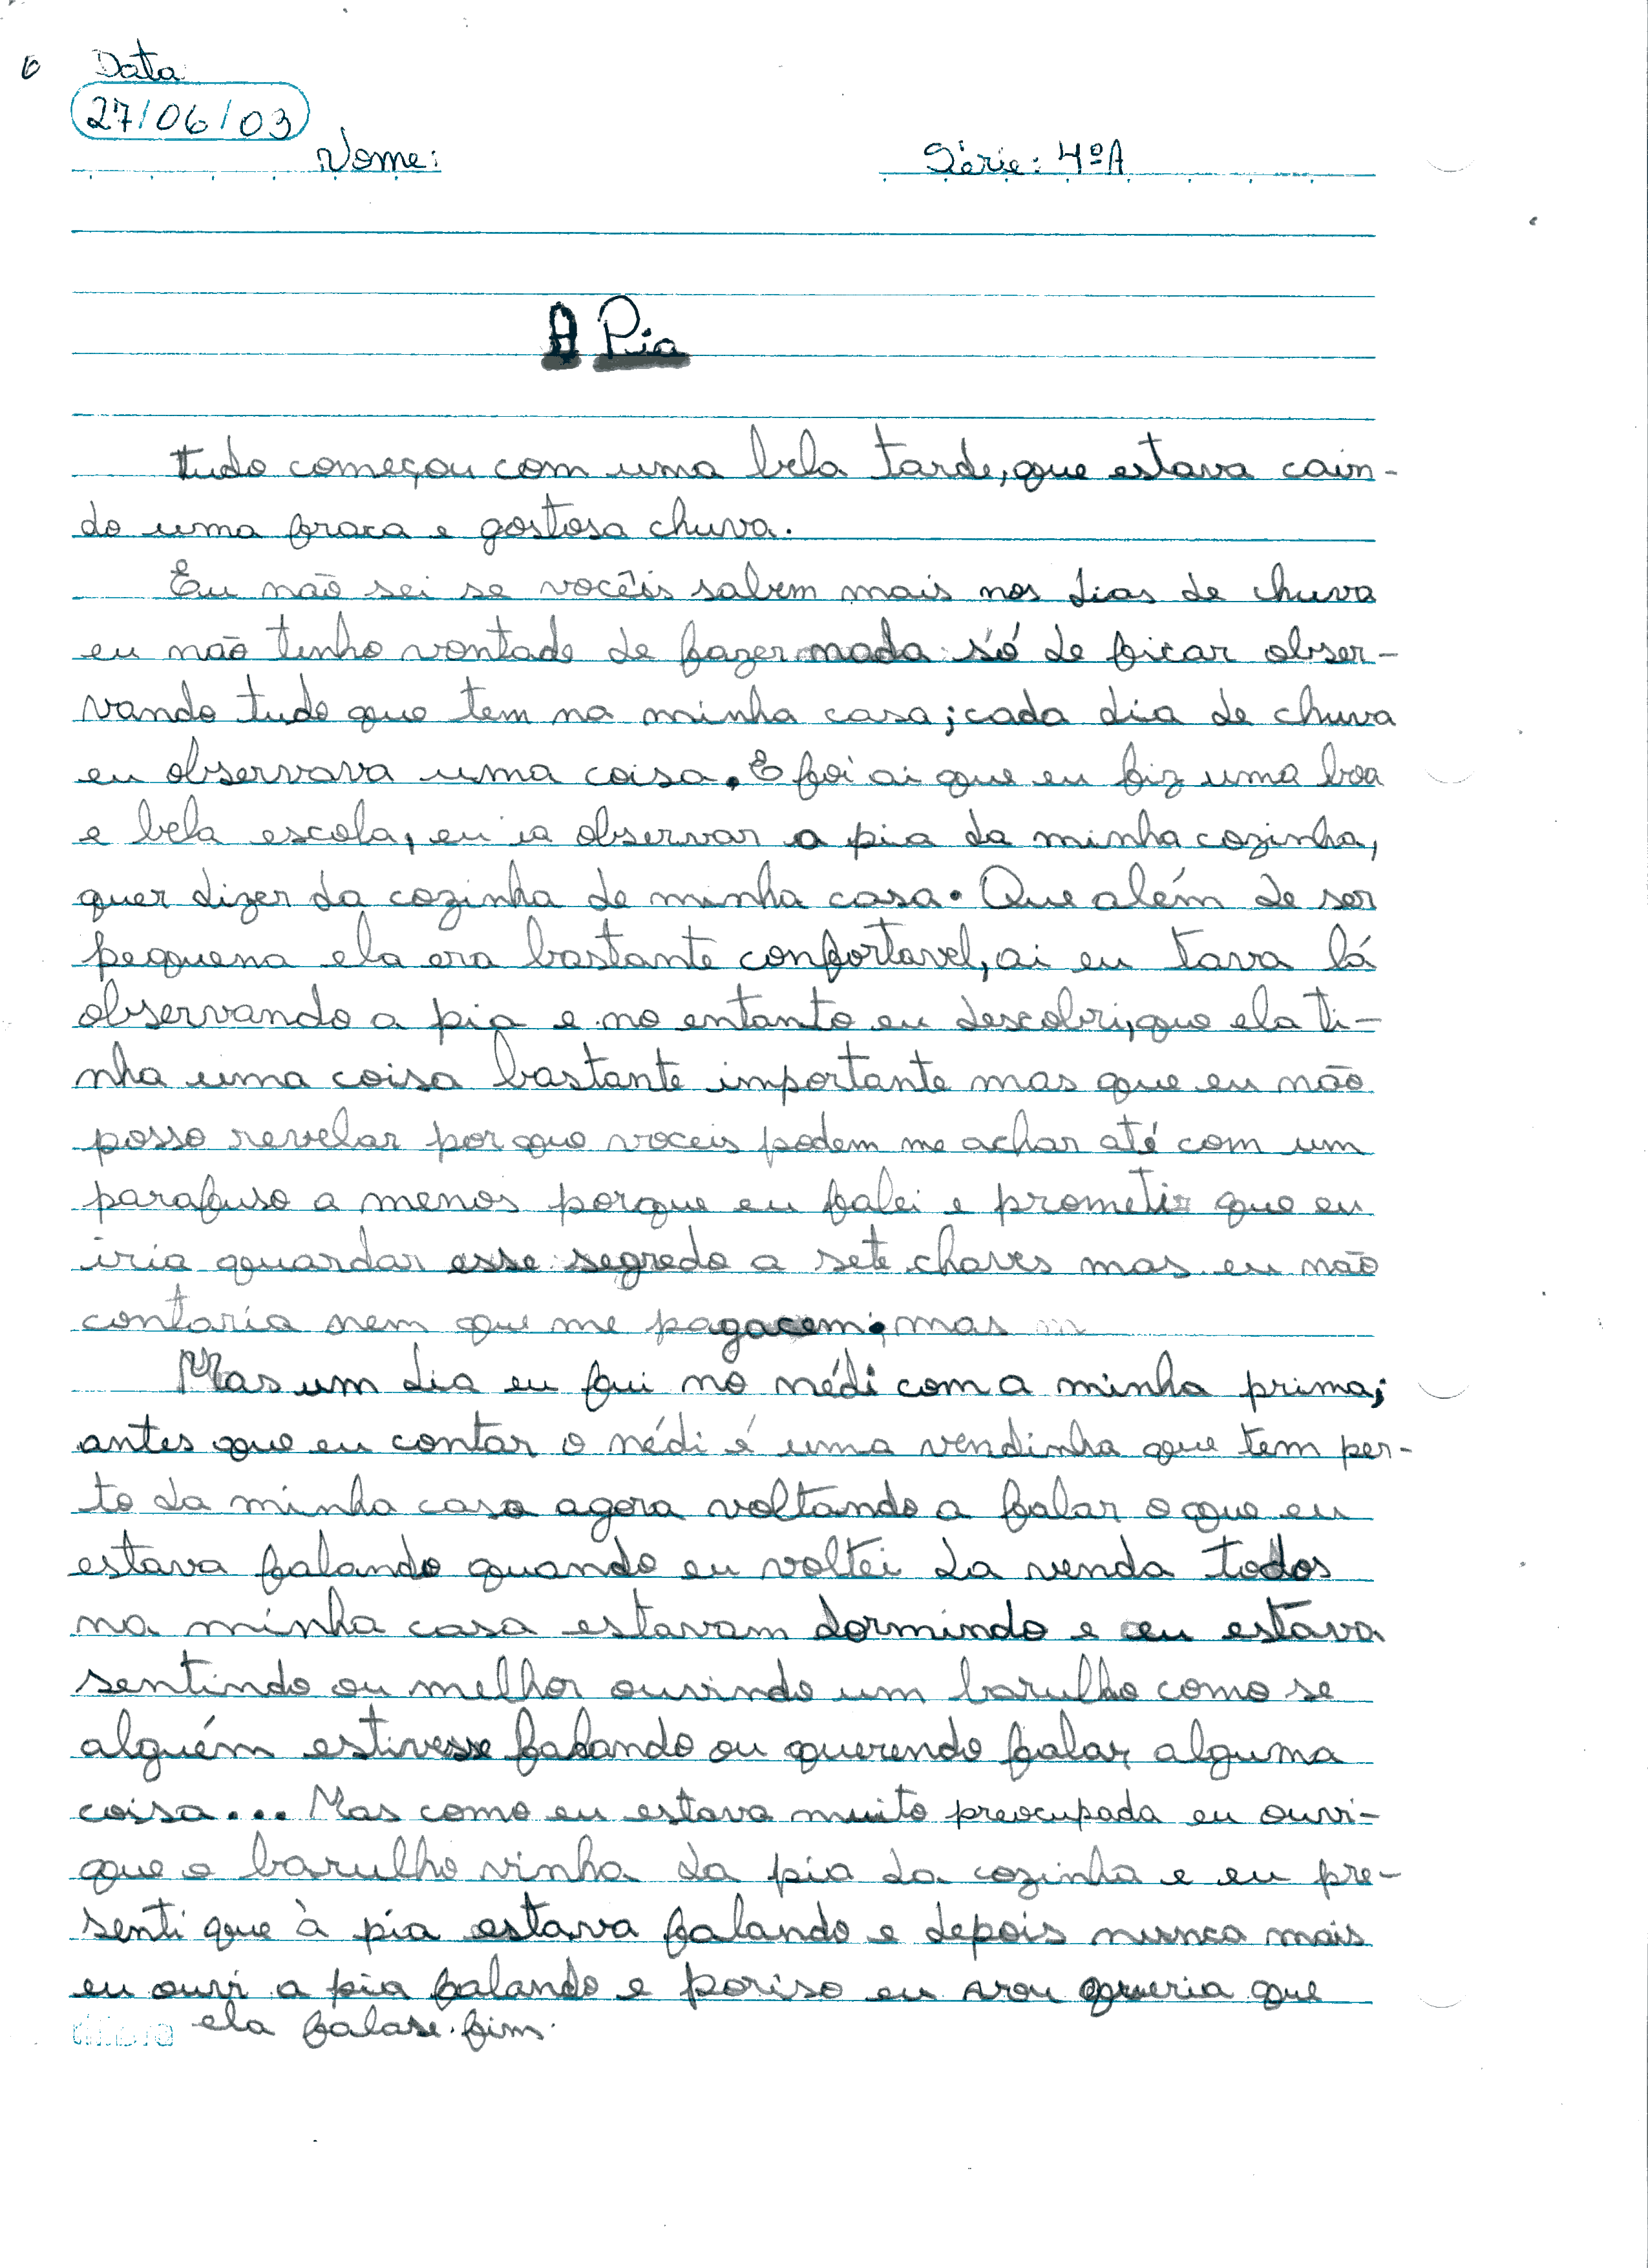 Data:
27/06/03
Nome:
Série: 4ºA
A Pia
tudo começou com uma bela tarde, que estava cain-
do uma fraca e gostosa chuva.
Eu não sei se vocêis sabem mais nos dias de chuva
eu não tenho vontade de fazer nada só de ficar obser-
vando tudo que tem na minha casa; cada dia de chuva
eu observava uma coisa. E foi ai que eu fiz uma boa
e bela escola, eu ia observar a pia da minha cozinha,
quer dizer da cozinha de minha casa. Que além de ser
pequena ela era bastante confortavel, ai eu tava lá
observando a pia e no entanto eu descobri, que ela ti-
nha uma coisa bastante importante mas que eu não
posso revelar por que voceis podem me achar até com um
parafuso a menos porque eu falei e prometi que eu
iria guardar esse segredo a sete chaves mas eu não
contaria nem que me pagacem; mas
Mas um dia eu fui no nédi com a minha prima;
antes que eu contar o nédi é uma vendinha que tem per-
to da minha casa agora voltando a falar o que eu
estava falando quando eu voltei da venda todos
na minha casa estavam dormindo e eu estava
sentindo ou melhor ouvindo um barulho como se
alguém estivesse falando ou querendo falar alguma
coisa... Mas como eu estava muito preocupada eu ouvi-
que o barulho vinha da pia da cozinha e eu pre-
senti que à pia estava falando e depois nunca mais
eu ouvi a pia falando e poriso eu queria que
ela falase. fim.